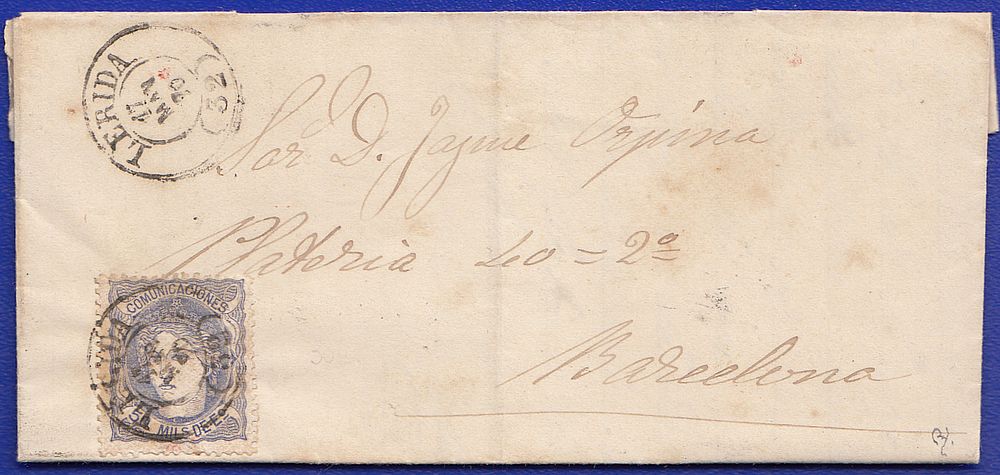 LERIDA
17
MAY
70
(52)
Sor D. Jayme Ozpina
Plateria 40 = 2º
Barcelona
COMUNICACIONES
50 MILS. DE Eº